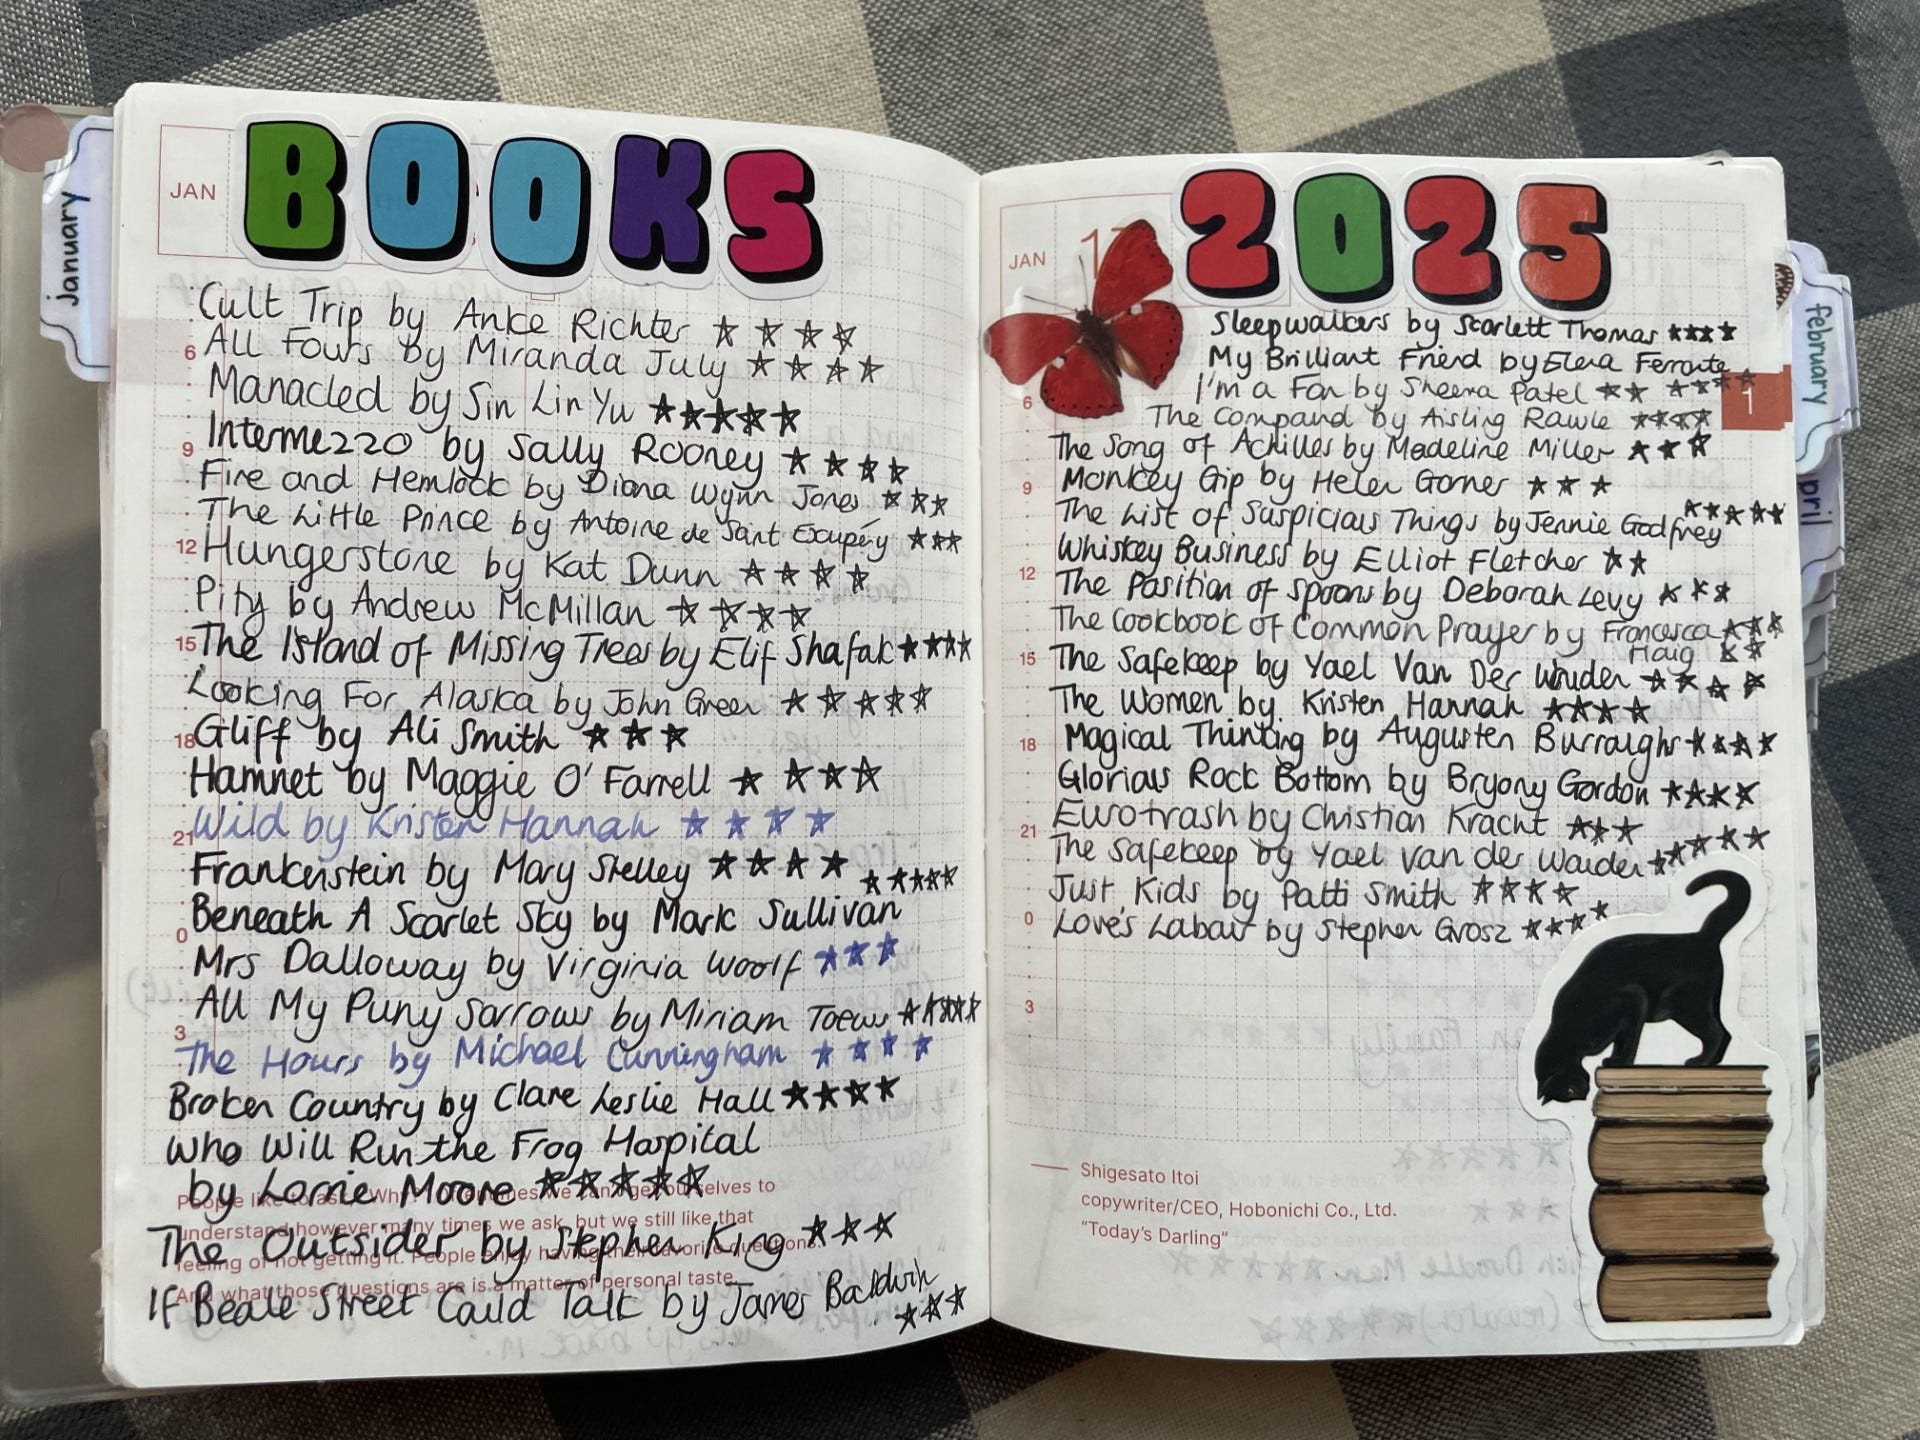 january
JAN
BOOKS
Cult Trip by Anke Richter ☆☆☆☆
6
All Fours by Miranda July ☆☆☆☆
Manacled by Sin Lin Yu ★★★★★
9
Intermezzo by Sally Rooney ★★★★
Fire and Hemlock by Diana Wynn Jones ★★★
The Little Prince by Antoine de Saint Exupéry ★★★
12
Hungerstone by Kat Dunn ★★★★
Pity by Andrew McMillan ★★★★
15
The Island of Missing Trees by Elif Shafak ★★★★
Looking For Alaska by John Green ★★★★★
18
Gliff by Ali Smith ★★★
Hamnet by Maggie O'Farrell ★★★★
21
Wild by Kristen Hannah ★★★★
Frankenstein by Mary Shelley ★★★★
★★★★★
Beneath A Scarlet Sky by Mark Sullivan
0
Mrs Dalloway by Virginia Woolf ★★★
All My Puny Sorrows by Miriam Toews ★★★★★
3
The Hours by Michael Cunningham ★★★★
Broken Country by Clare Leslie Hall ★★★★
Who Will Run the Frog Hospital
by Lorrie Moore ★★★★★
People like to ask, Why? Sometimes we can get ourselves to
understand however many times we ask, but we still like that
feeling of not getting it. People enjoy having their favorite questions.
And what those questions are is a matter of personal taste.
The Outsider by Stephen King ★★★
If Beale Street Could Talk by James Baldwin
★★★
JAN 17
2025
Sleepwalkers by Scarlett Thomas ★★★★
My Brilliant Friend by Elena Ferrante
★★★★
I'm a Fan by Sheena Patel ★★
1
6
The Compound by Aisling Rawle ★★★★
The Song of Achilles by Madeline Miller ★★★
9
Monkey Grip by Helen Garner ★★★
★★★★★
The List of Suspicious Things by Jennie Godfrey
Whiskey Business by Elliot Fletcher ★★
12
The Position of Spoons by Deborah Levy ★★★
The Cookbook of Common Prayer by Francesca ★★★
Haig ★★
15
The Safekeep by Yael Van Der Wouden ★★★★
The Women by Kristen Hannah ★★★★
18
Magical Thinking by Augusten Burroughs ★★★★
Glorious Rock Bottom by Bryony Gordon ★★★★
21
Eurotrash by Christian Kracht ★★★
The Safekeep by Yael van der Wouden ★★★★★
Just Kids by Patti Smith ★★★★
0
Love's Labour by Stephen Grosz ★★★★
3
Shigesato Itoi
copywriter/CEO, Hobonichi Co., Ltd.
"Today's Darling"
february
pril